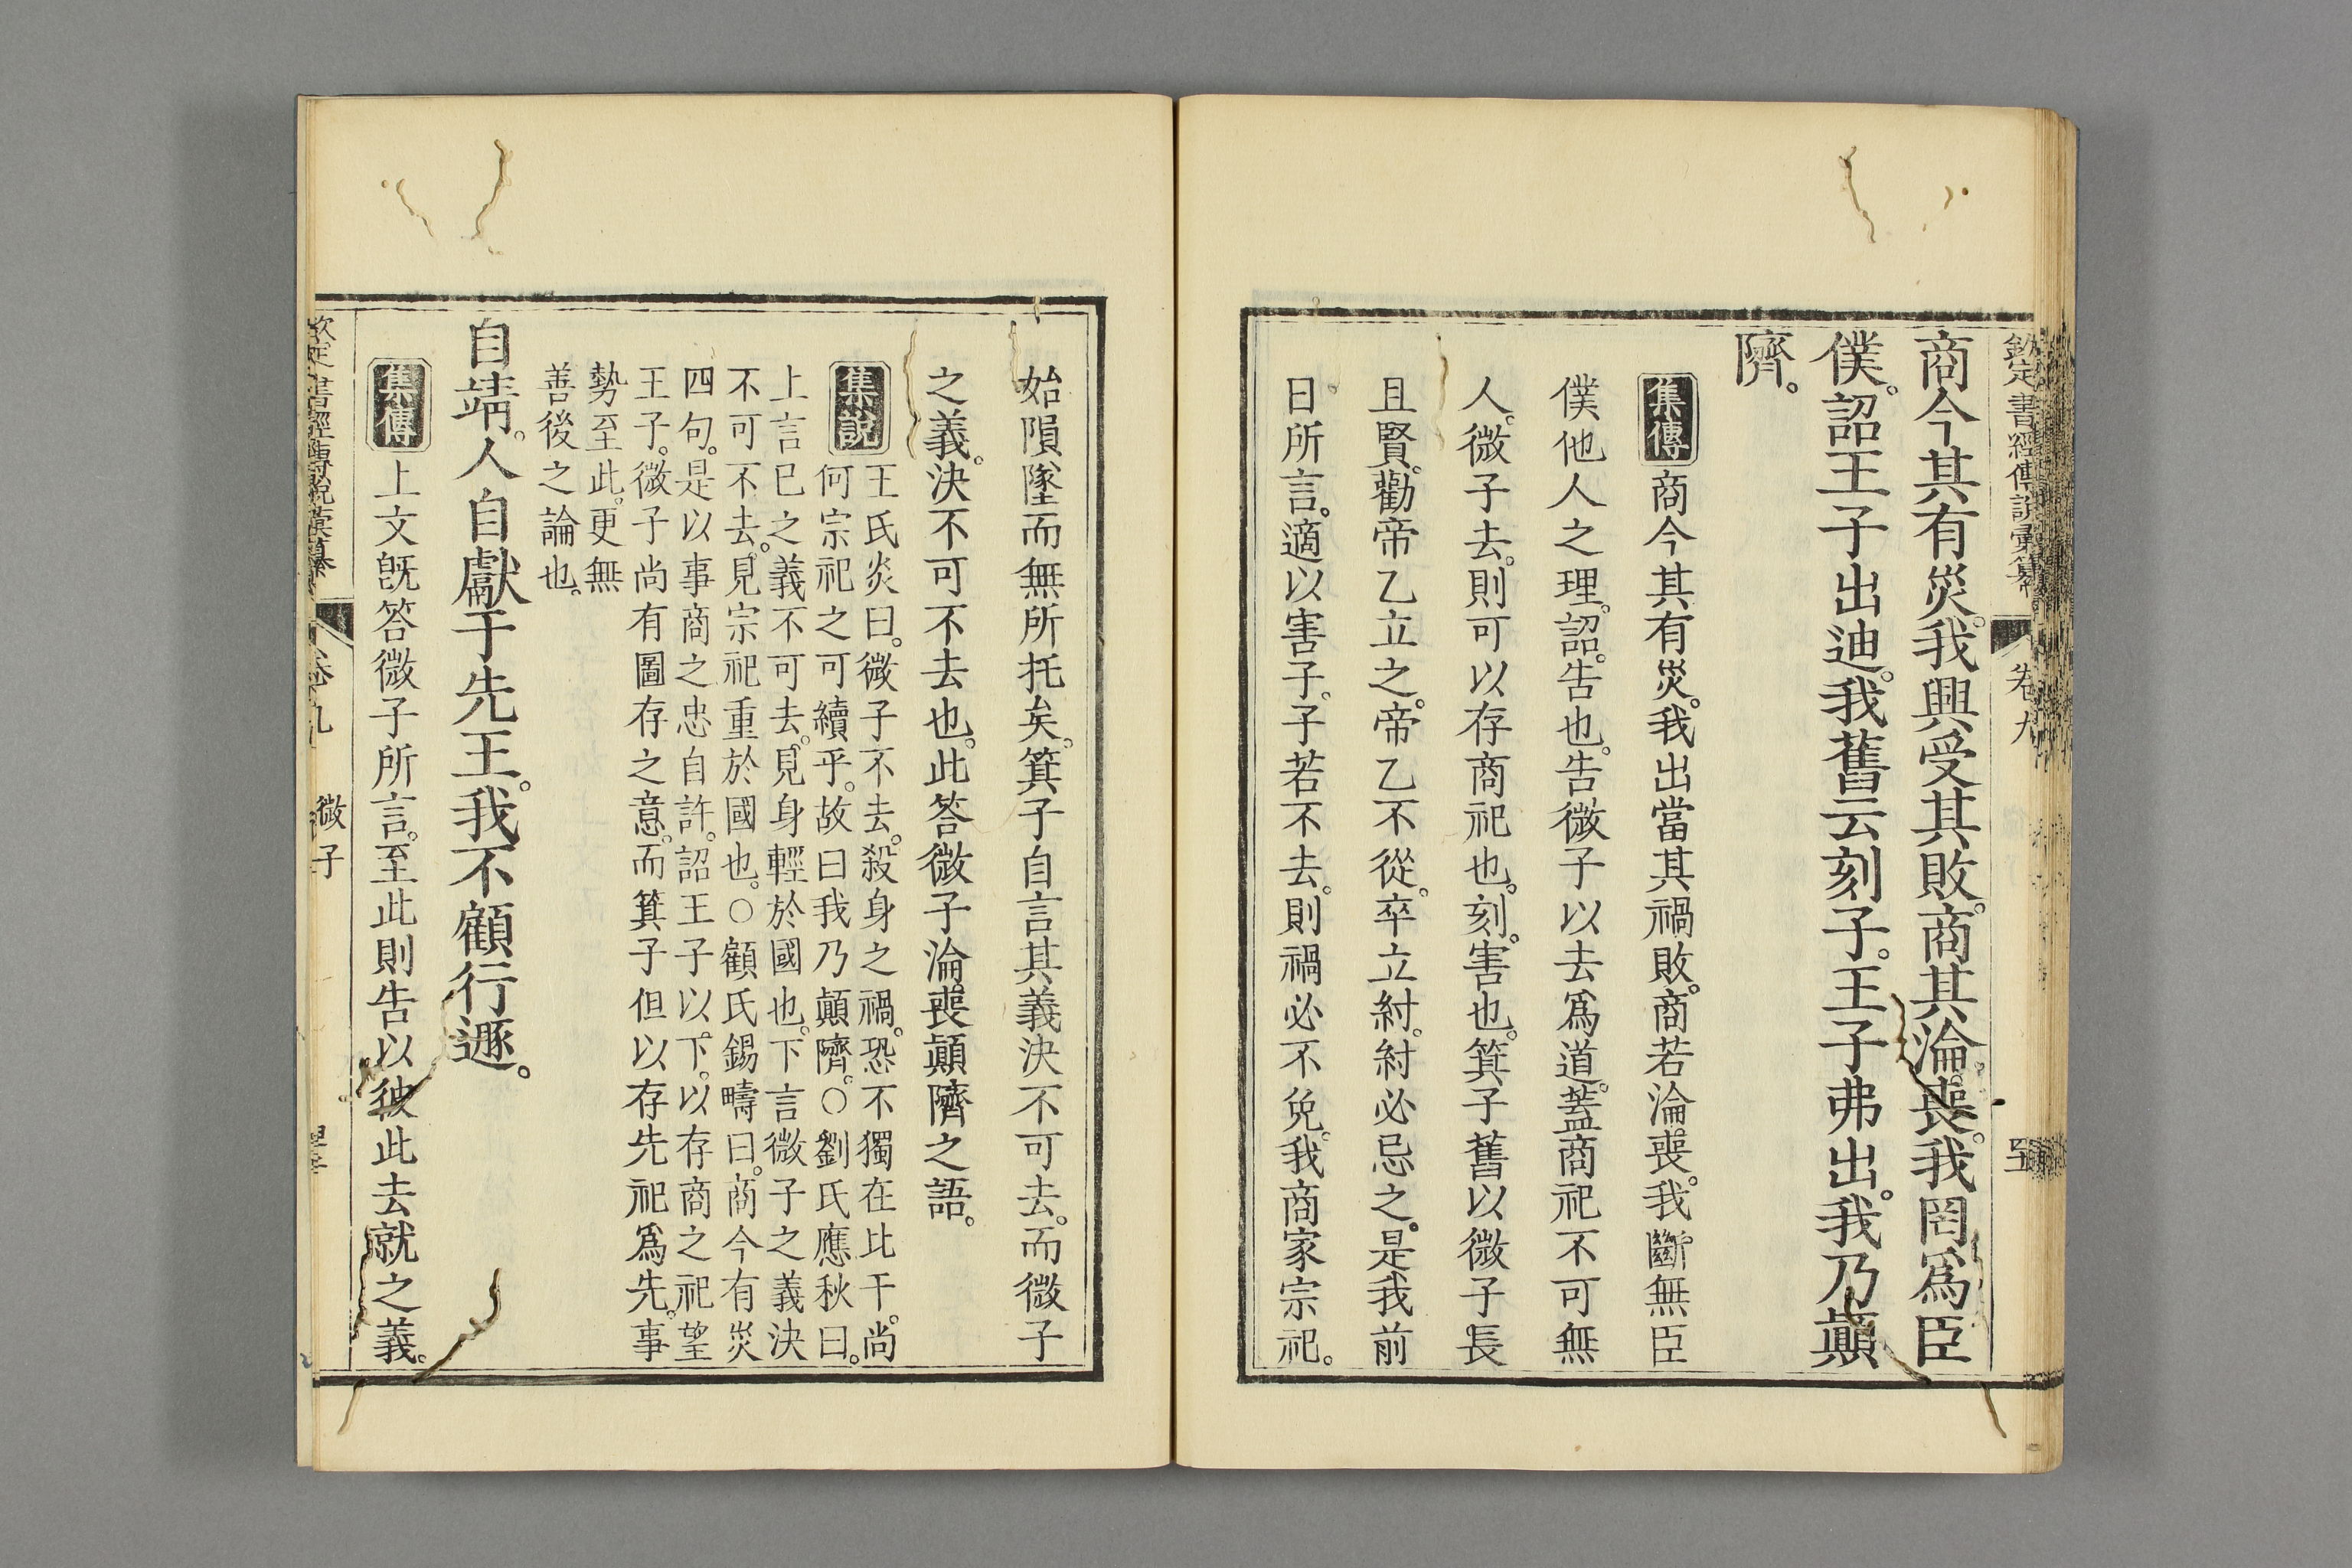 欽定書經傳說彙纂 卷九
商今其有災。我興受其敗。商其淪喪。我罔爲臣
僕。詔王子出迪。我舊云刻子。王子弗出。我乃顚
隮。
集傳 商今其有災。我出當其禍敗。商若淪喪。我斷無臣
僕他人之理。詔。告也。告微子以去爲道。蓋商祀不可無
人。微子去。則可以存商祀也。刻。害也。箕子舊以微子長
且賢。勸帝乙立之。帝乙不從。卒立紂。紂必忌之。是我前
日所言。適以害子。子若不去。則禍必不免。我商家宗祀。
始隕墜而無所托矣。箕子自言其義決不可去。而微子
之義。決不可不去也。此答微子淪喪顚隮之語。
集說 王氏炎曰。微子不去。殺身之禍。恐不獨在比干。尚
何宗祀之可續乎。故曰我乃顚隮。○劉氏應秋曰。
上言已之義不可去。見身輕於國也。下言微子之義決
不可不去。見宗祀重於國也。○顧氏錫疇曰。商今有災
四句。是以事商之忠自許。詔王子以下。以存商之祀望
王子。微子尚有圖存之意。而箕子但以存先祀爲先。事
勢至此。更無
善後之論也。
自靖。人自獻于先王。我不顧行遯。
集傳 上文旣答微子所言。至此則告以彼此去就之義。
欽定書經傳說彙纂 卷九 微子